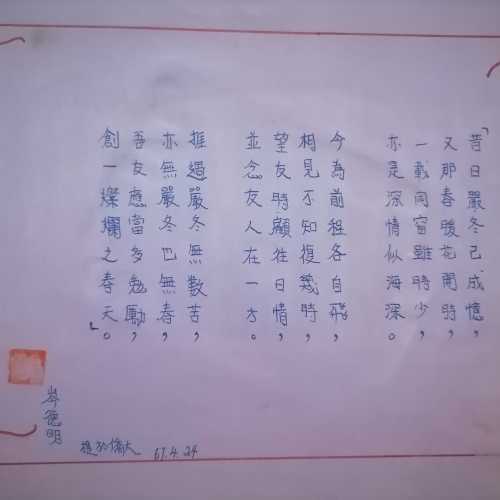 「昔日嚴冬已成憶,
又那春暖花開時,
一載同窗雖時少,
亦是深情似海深。
今為前程各自飛,
相見不知復幾時,
望友時顧往日情,
並念友人在一方。
捱過嚴冬無數苦,
亦無嚴冬也無春,
吾友應當多勉勵,
創一燦爛之春天。」
岑德明
提於僑大 67.4.24